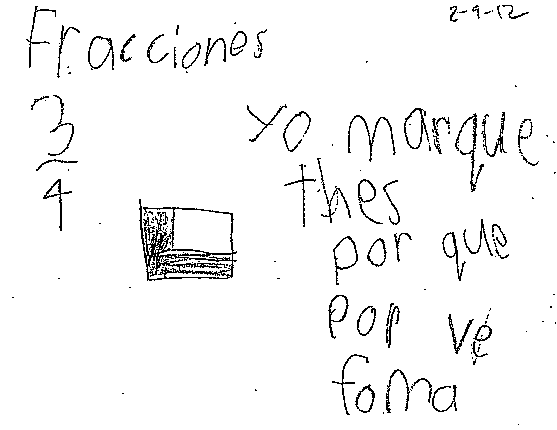 2-9-12
Fracciones
3/4
yo marque
thes
por que
por ve
foma